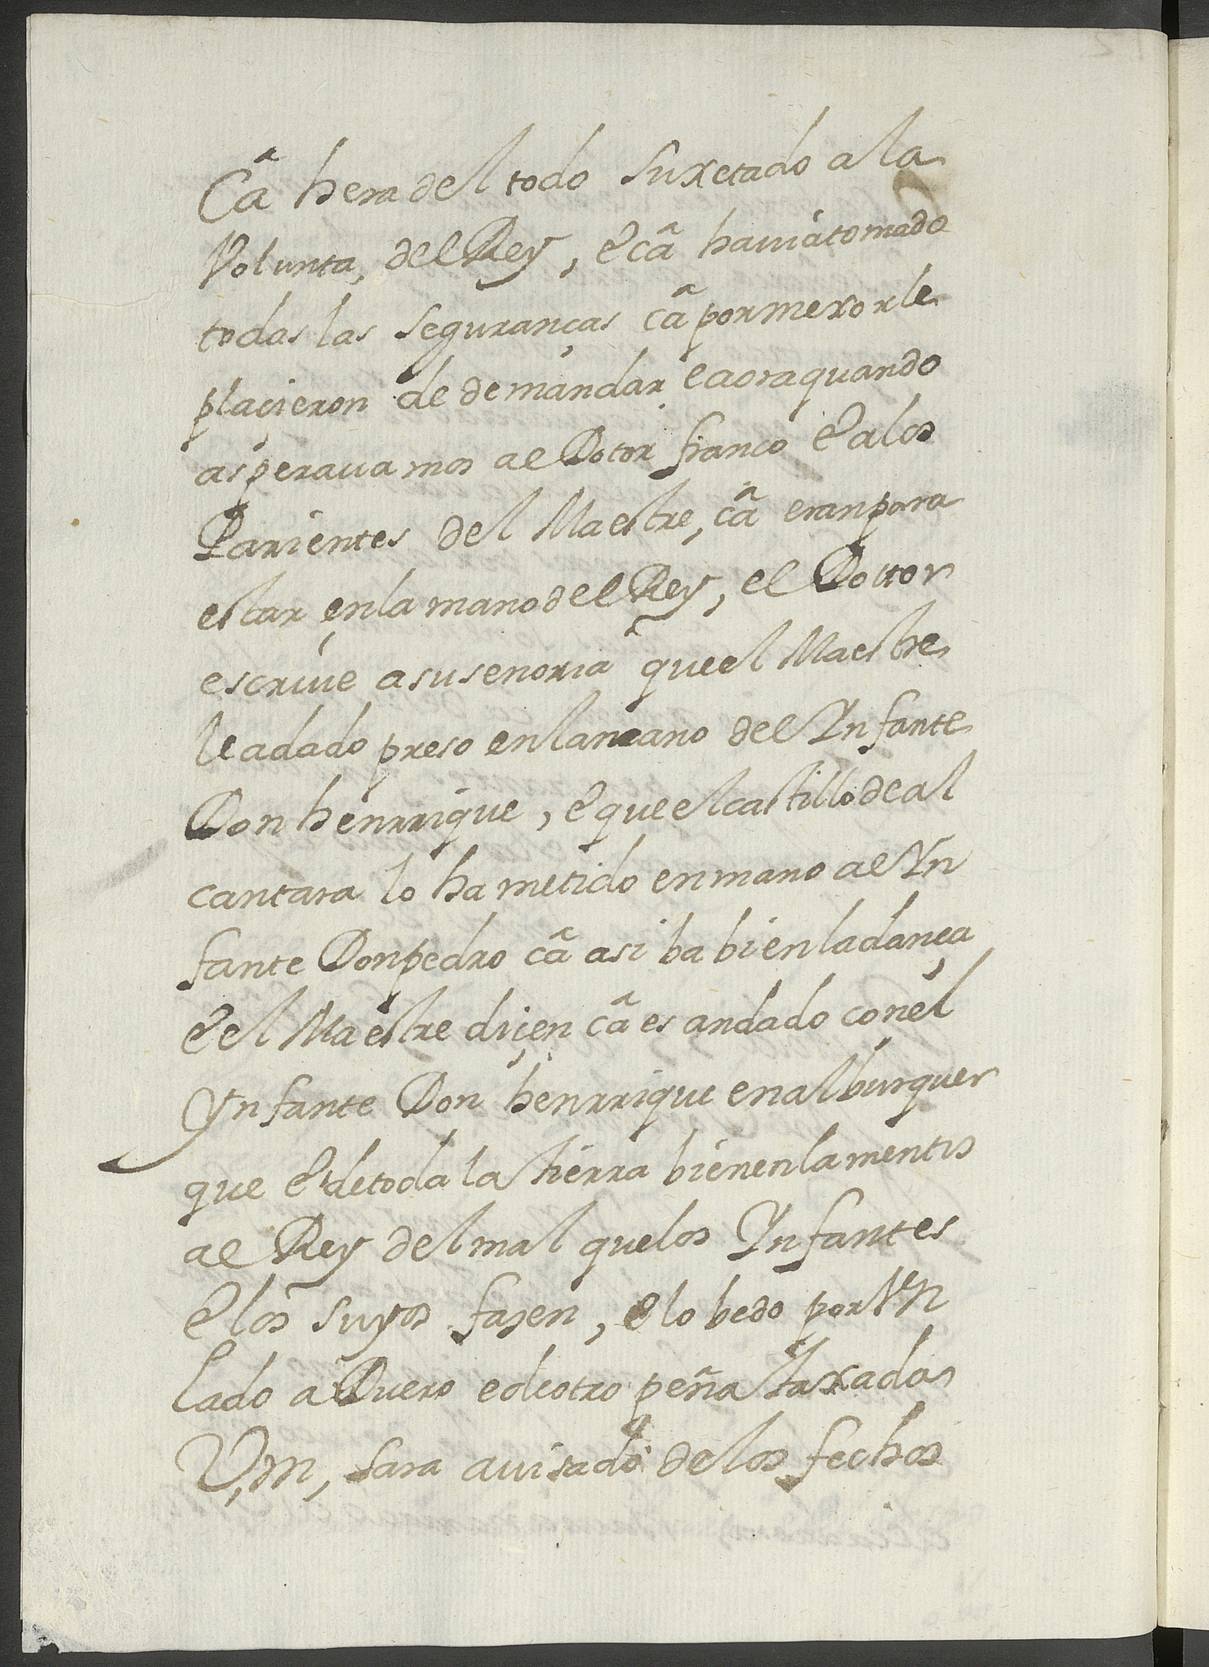 Câ hera del todo suxetado a la
Volunta, del Rey, e câ haviatomado
todas las seguranças câ por mexorle
plaçieron de demandar eaoraquando
asperavamos al Dotor franco e alos
Parientes del Maestre, câ eranpara
estar enla mano del Rey, el Dottor
escrive asusenoria queel Maestre
leadado preso enlamano del Ynfante
Don henrrique, e queelcastillo de al
cantara lo hametido enmano al Yn
fante Donpedro câ asi ba bienladança
e el Maestre diçen câ es andado conel
Ynfante Don henrrique enalburquer
que e detoda la tierra bienenlamentos
al Rey delmal quelos Ynfantes
e los suyos fasen, e lo bedo porVn
lado aDuero edeotro peña taxadas
V,m, sara avisado delos fechos